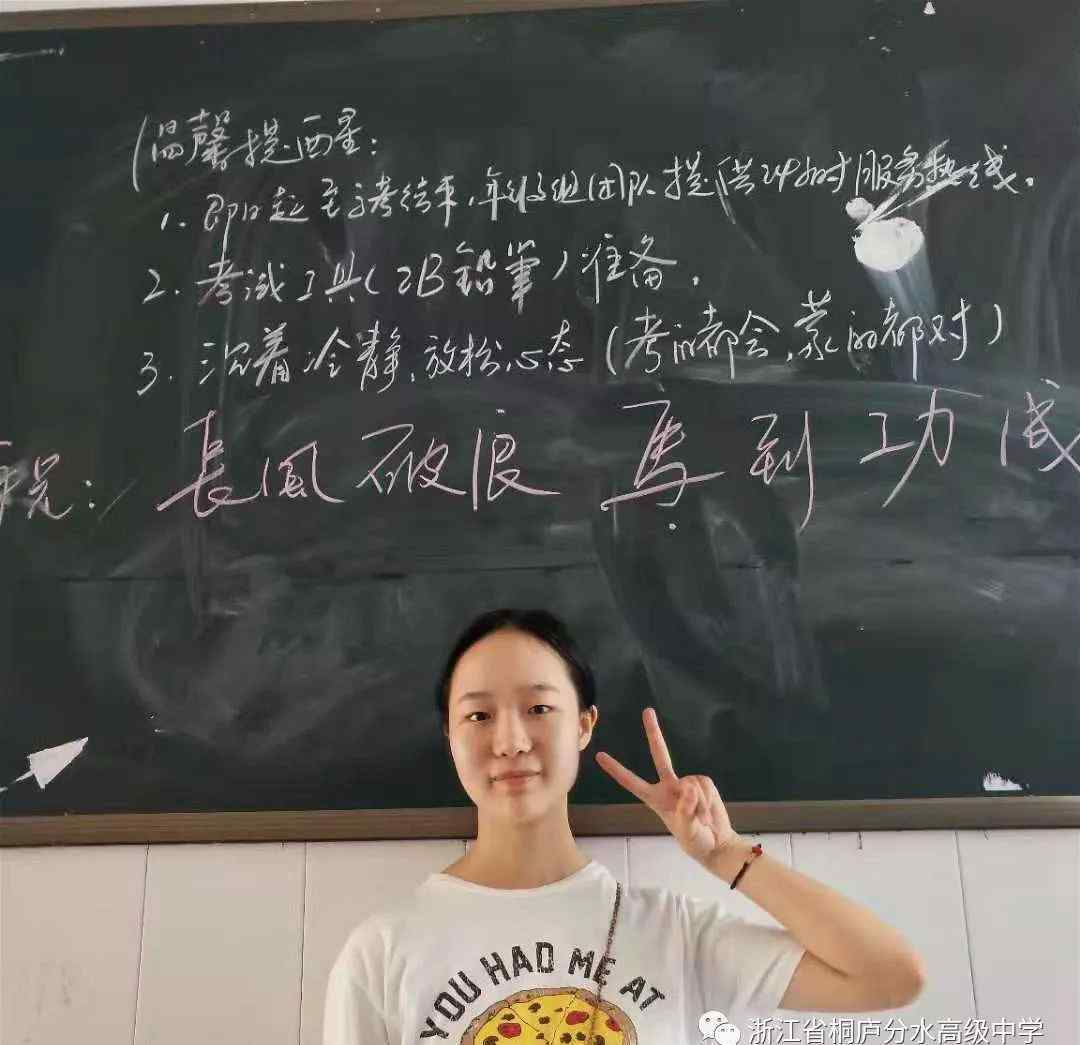 温馨提醒：
1. 即日起至高考结束，年级组团队提供24小时服务热线。
2. 考试工具（2B铅筆）准备。
3. 沉着冷静，放松心态（考的都会，蒙的都对）
祝： 長風破浪 馬到功成
YOU HAD ME AT
浙江省桐庐分水高级中学